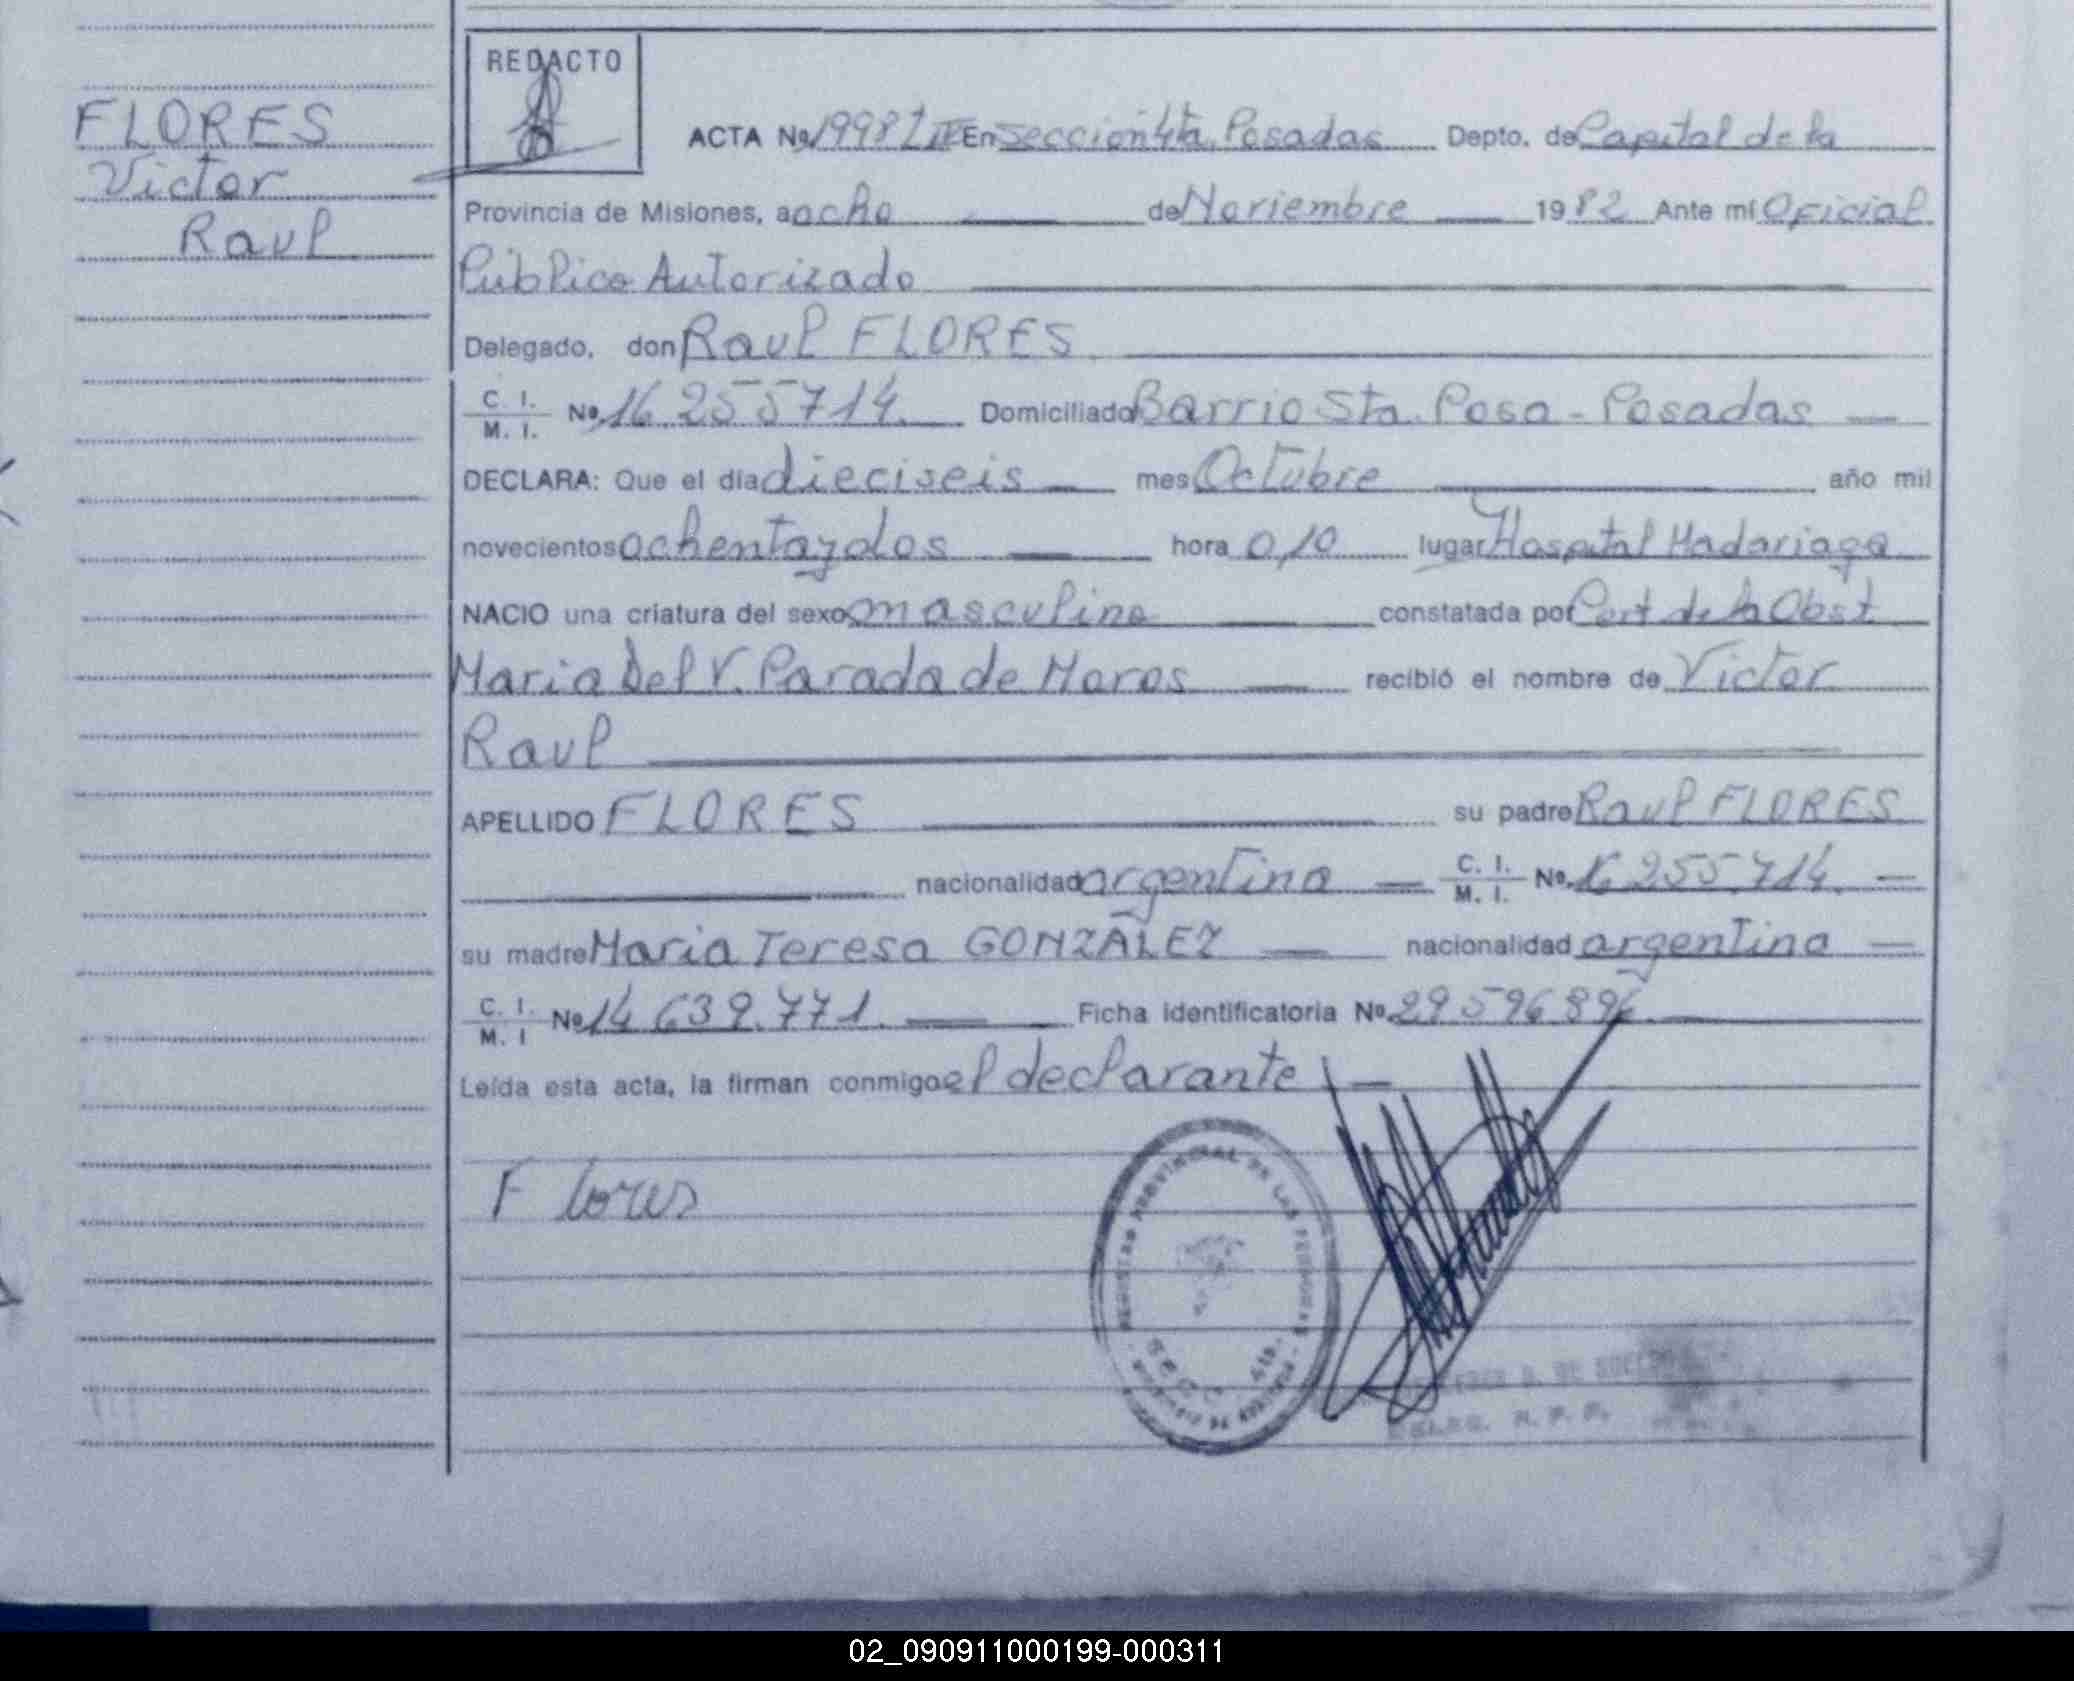 REDACTO
FLORES
Victor
Raul
ACTA Nº 1998 En Sección 4ta. Posadas Depto. de Capital de la
Provincia de Misiones, a ocho de Noviembre 1982 Ante mí Oficial
Público Autorizado
Delegado, don Raul FLORES
C. I. / M. I. Nº 16.255714. Domiciliado Barrio Sta. Rosa - Posadas
DECLARA: Que el día dieciseis mes Octubre año mil
novecientos ochentaydos hora 0,10 lugar Hospital Madariaga
NACIO una criatura del sexo masculino constatada por Cert de la Obst
Maria Del V. Parada de Moros recibió el nombre de Victor
Raul
APELLIDO FLORES su padre Raul FLORES
nacionalidad argentina C. I. / M. I. Nº 16.255.714.
su madre Maria Teresa GONZALEZ nacionalidad argentina
C. I. / M. I Nº 14.639.771. Ficha identificatoria Nº 29596896
Leída esta acta, la firman conmigo el declarante
Flores
REGISTRO PROVINCIAL DE LAS PERSONAS
SECC. 4ta.
02_090911000199-000311